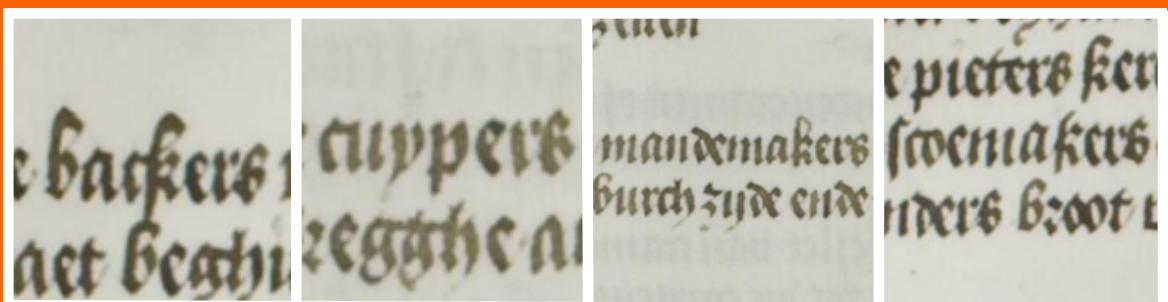 backers
beghi
cuypers
regghe
mandemakers
burch zijde ende
pieters ker
scoemakers
nders broot